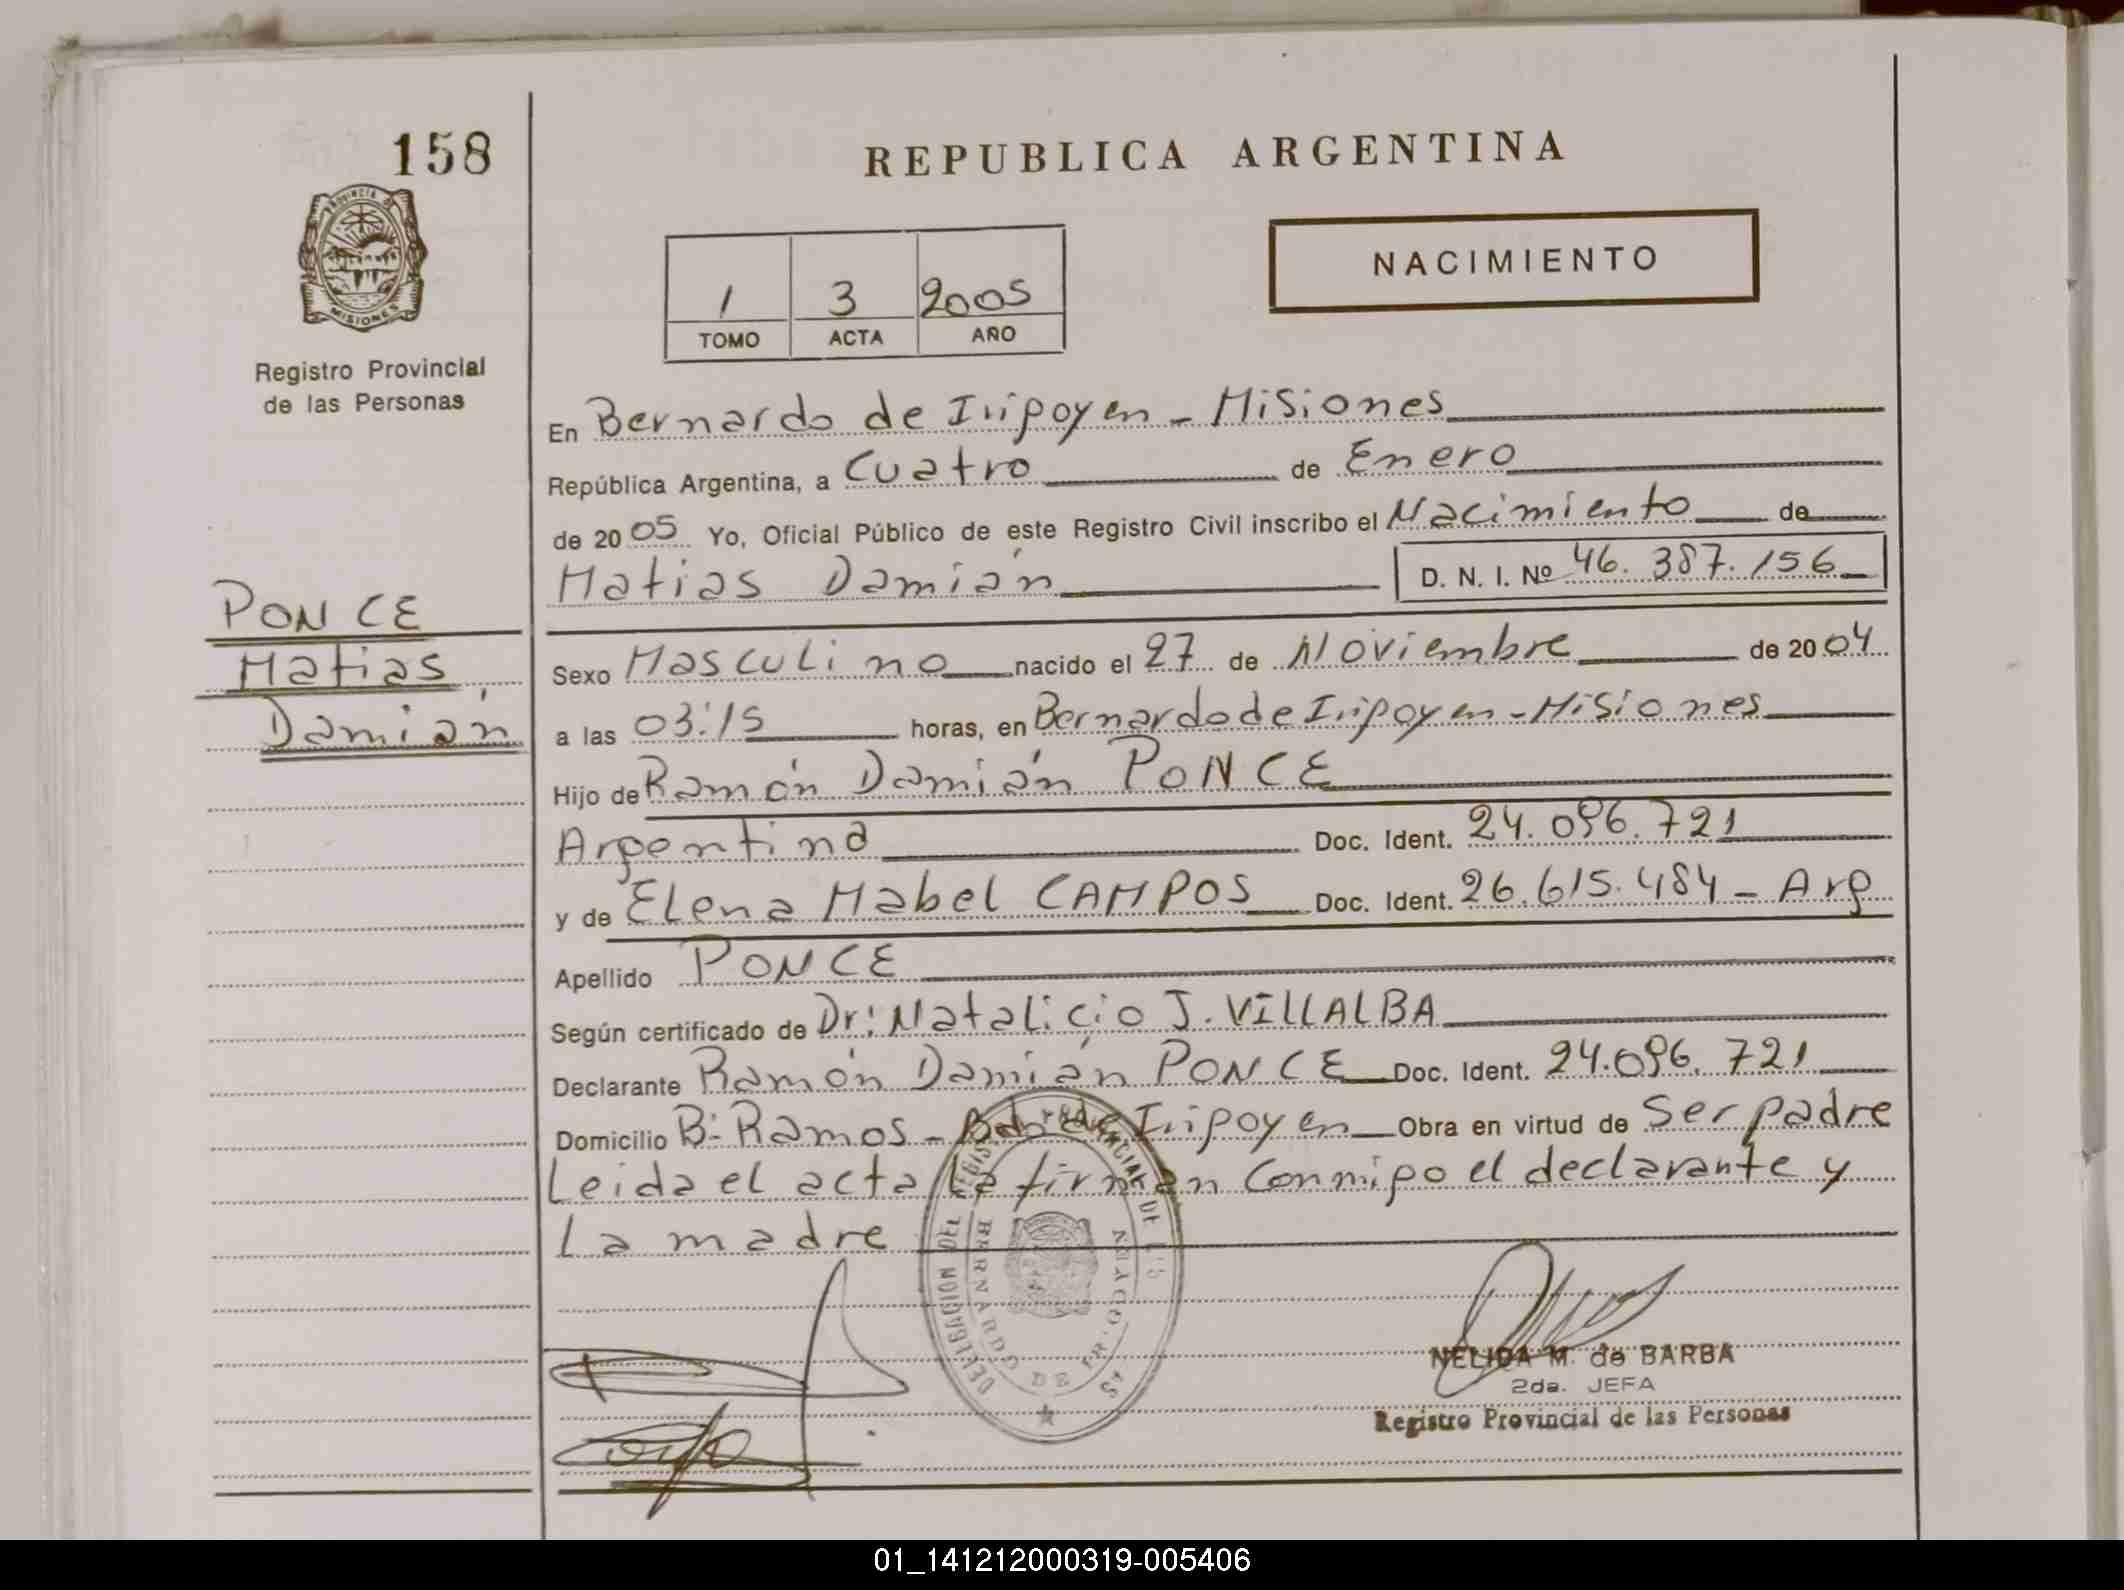 158
REPUBLICA ARGENTINA
PROVINCIA D
MISIONES
NACIMIENTO
1 3 2005
TOMO ACTA AÑO
Registro Provincial
de las Personas
En Bernardo de Irigoyen - Misiones
República Argentina, a Cuatro de Enero
de 2005 Yo, Oficial Público de este Registro Civil inscribo el Nacimiento de
Matias Damián D. N. I. Nº 46.387.156
PONCE
Matias
Damián
Sexo Masculino nacido el 27 de Noviembre de 2004
a las 03:15 horas, en Bernardo de Irigoyen - Misiones
Hijo de Ramón Damián PONCE
Argentina Doc. Ident. 24.096.721
y de Elena Mabel CAMPOS Doc. Ident. 26.615.484 - Arg
Apellido PONCE
Según certificado de Dr: Natalicio J. VILLALBA
Declarante Ramón Damián PONCE Doc. Ident. 24.096.721
Domicilio Bº Ramos - Bdo de Irigoyen Obra en virtud de Ser padre
Leida el acta la firman conmigo el declarante y
la madre
DELEGACION DEL REGISTRO PROVINCIAL DE LAS
BERNARDO DE IRIGOYEN
NELIDA M. de BARBA
2da. JEFA
Registro Provincial de las Personas
01_141212000319-005406